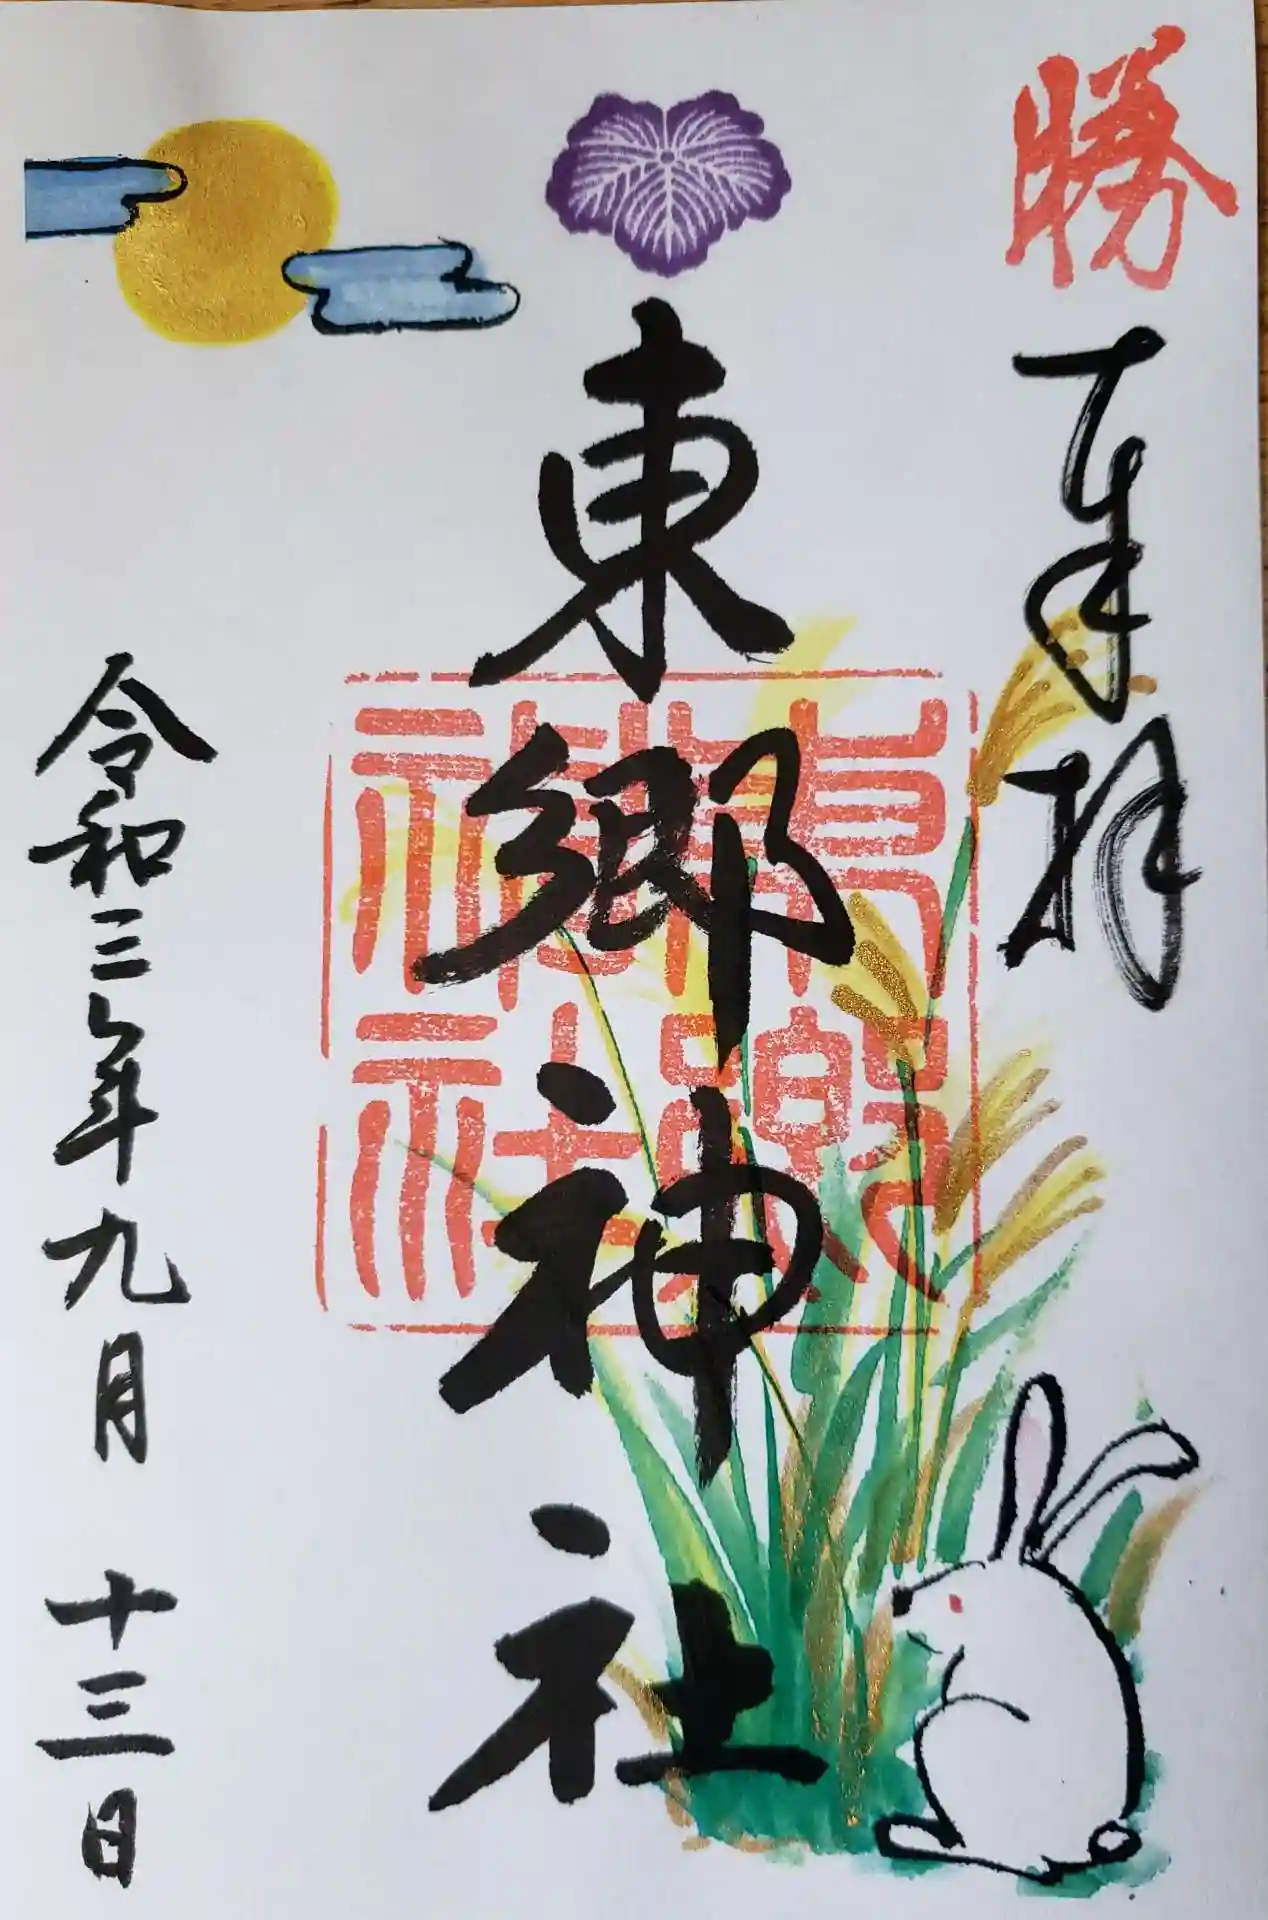 勝
奉拝
東郷神社
東郷神社
令和三年九月十三日